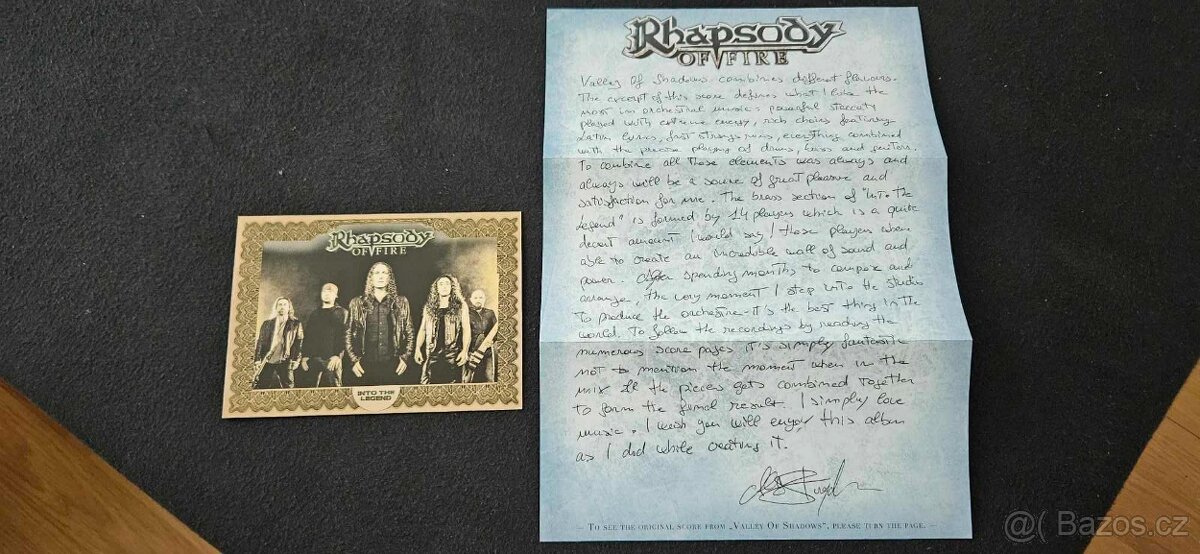 Rhapsody
OF FIRE
INTO THE
LEGEND
Rhapsody
OF FIRE
Valley Of Shadows combines different flavours.
The excerpt of this score defines what I like the
most in orchestral music: powerful staccato
played with extreme energy, rich choirs featuring
Latin lyrics, fast strings runs, everything combined
with the precise playing of drums, bass and guitars.
To combine all those elements was always and
always will be a source of great pleasure and
satisfaction for me. The brass section of "Into the
Legend" is formed by 14 players which is a quite
decent amount I would say! Those players were
able to create an incredible wall of sound and
power. After spending months to compose and
arrange, the very moment I step into the studio
to produce the orchestra - it's the best thing in the
world. To follow the recordings by reading the
numerous score pages it's simply fantastic
not to mention the moment when in the
mix all the pieces gets combined together
to form the final result. I simply love
music. I wish you will enjoy this album
as I did while creating it.
— TO SEE THE ORIGINAL SCORE FROM „VALLEY OF SHADOWS", PLEASE TURN THE PAGE. —
@( Bazos.cz